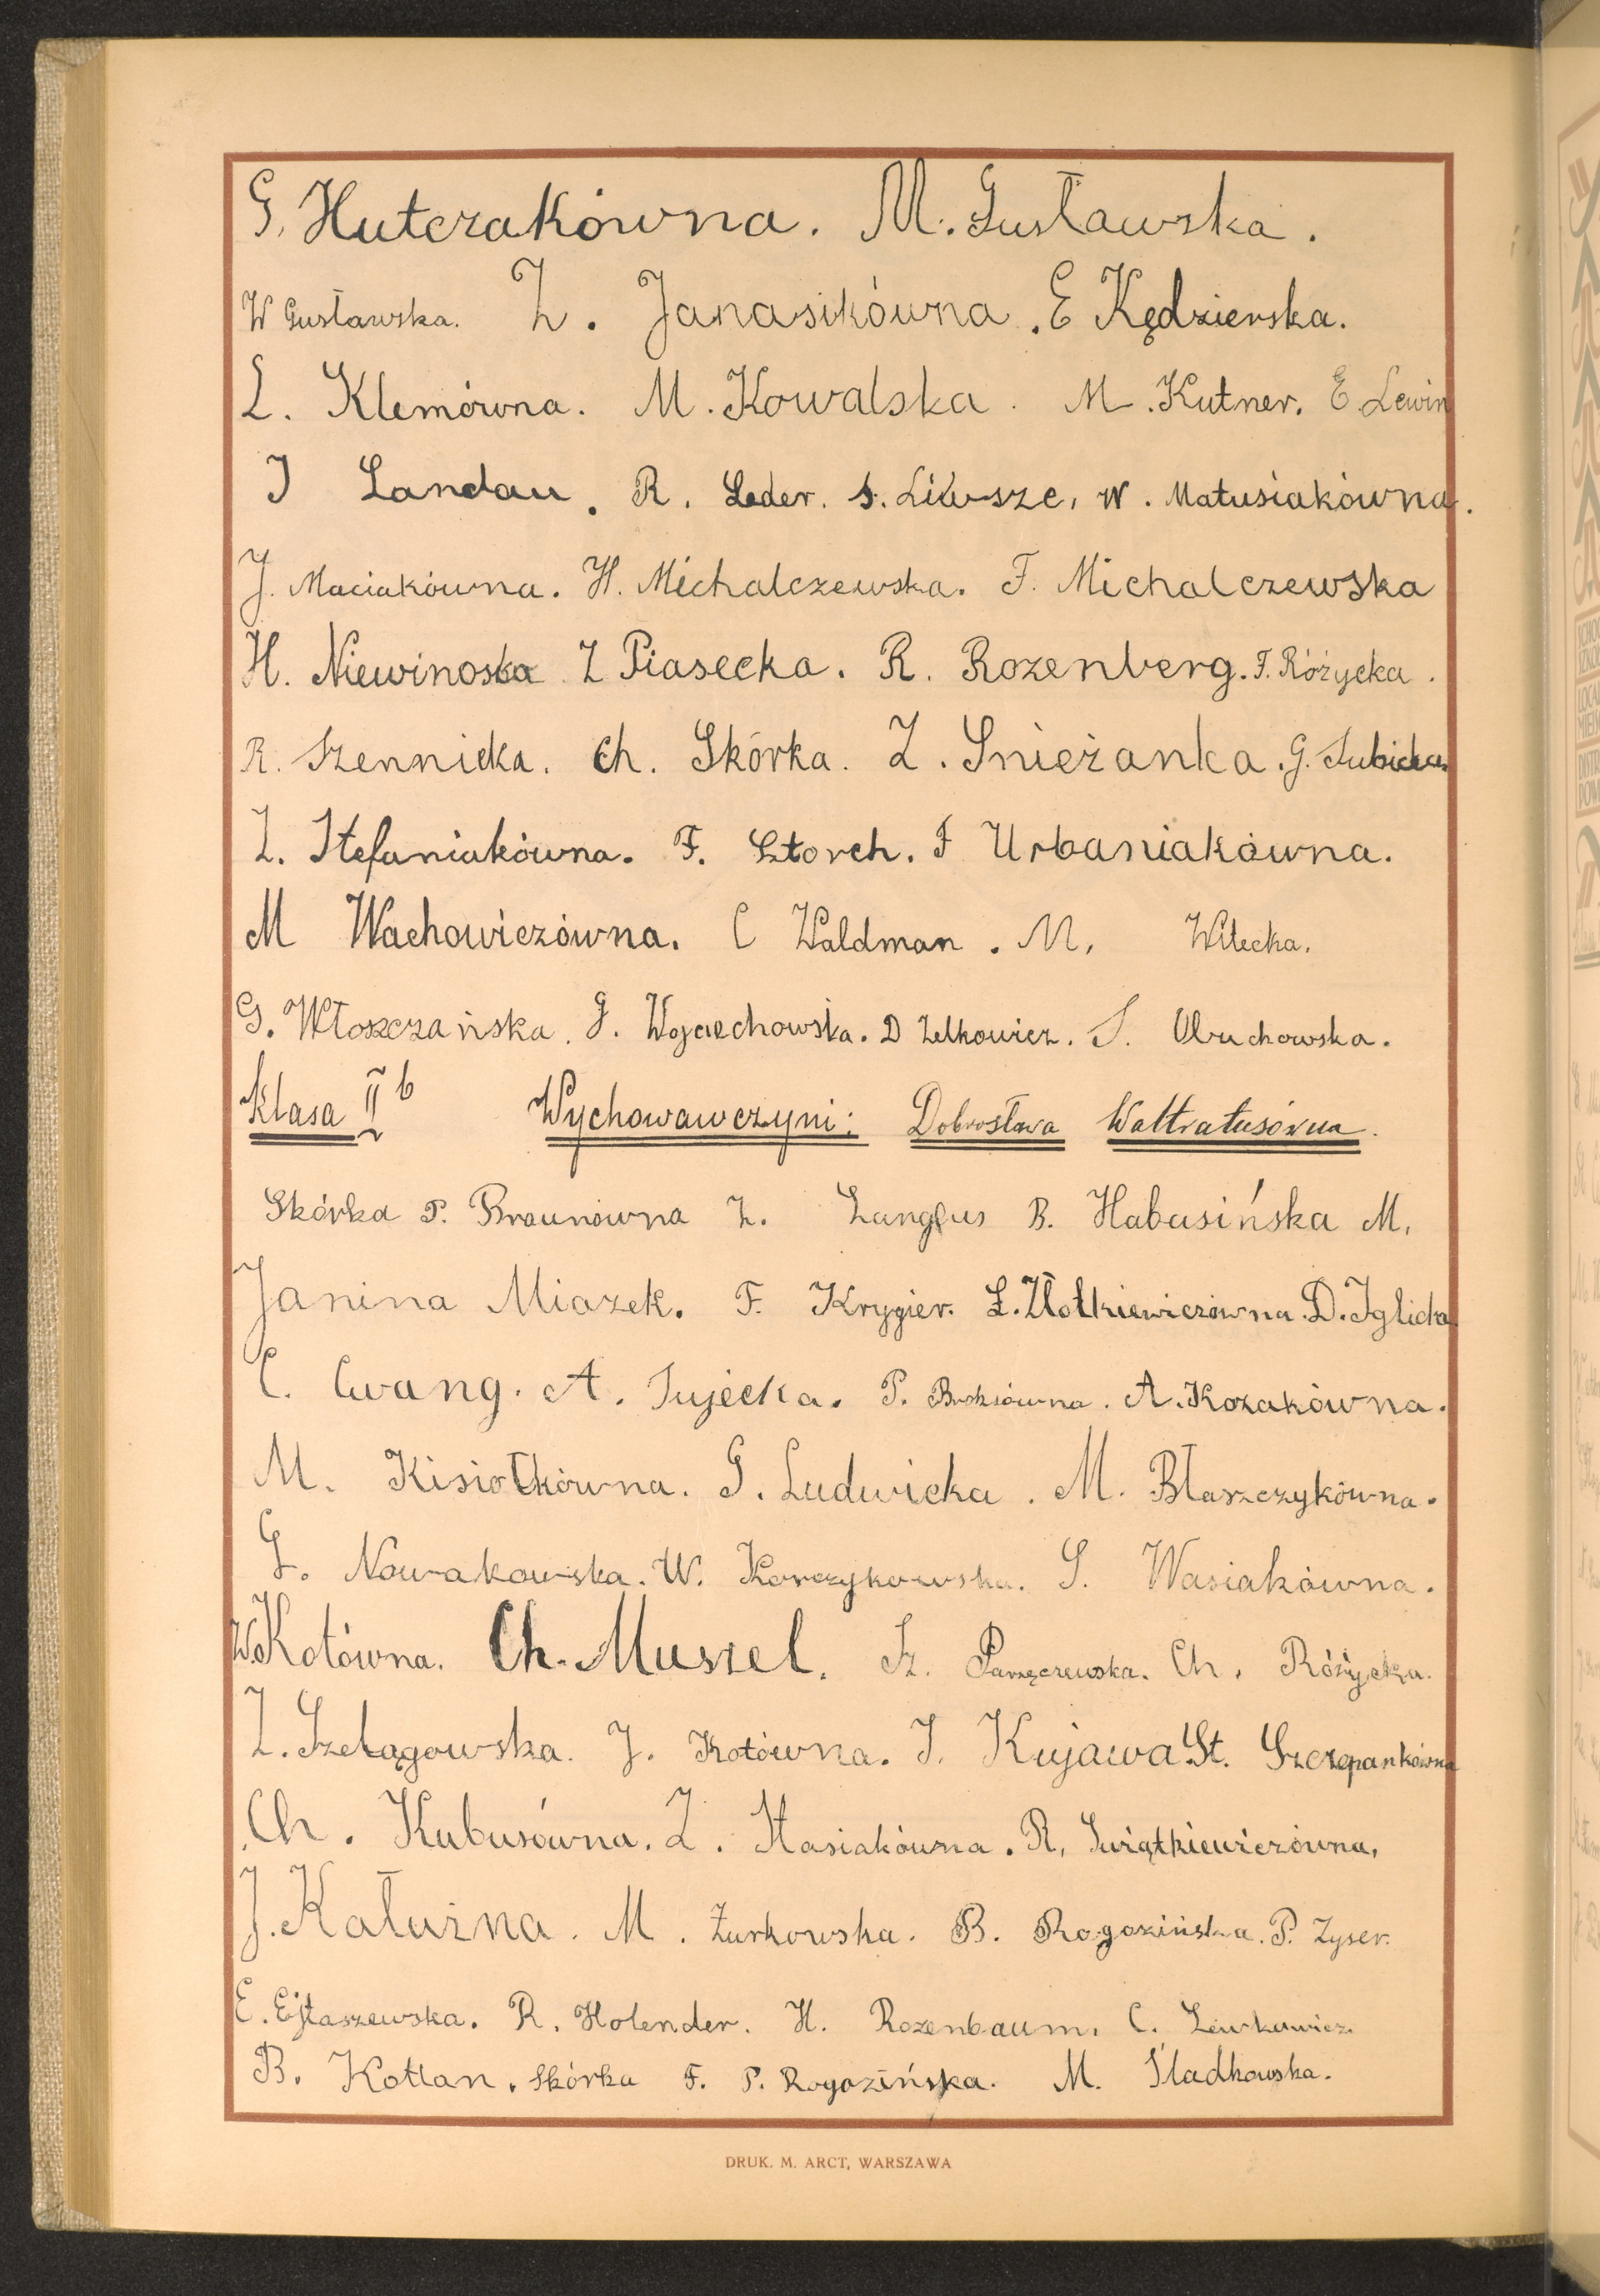 G. Hutczakówna. M. Gusławska.
W Gusławska. Z. Janasikówna. E Kędzierska.
L. Klemówna. M. Kowalska. M. Kutner. E. Lewin
J Landau. R. Leder. S. Liwsze, W. Matusiakówna.
J. Maciakówna. H. Michalczewska. F. Michalczewska
H. Niewinoska Z Piasecka. R. Rozenberg. F. Różycka.
R. Szennicka. Ch. Skórka. Z. Snieżanka. G. Subicka.
Z. Stefaniakówna. F. Sztorch. F Urbaniakówna.
M Wachowiczówna. C Waldman. M. Witecka.
G. Włoszczańska. J. Wojciechowska. D Zelkowicz. S. Obuchowska.
Klasa II b Wychowawczyni: Dobrosława Waltratusówna.
Skórka P. Braunówna Z. Langfus B. Habasińska M.
Janina Miazek. F. Krygier. L. Złotkiewiczówna. D. Iglicka
C. Cwang. A. Tujecka. P. A. Kozakówna.
M. Kisiołkówna. G. Ludwicka. M. Błaszczykówna.
G. Nowakowska. W. Korczykowska. S. Wasiakówna.
W. Kotówna. Ch. Muszel. Sz. Parzęczewska. Ch. Różycka.
Z. Szelągowska. J. Kotówna. J. Kujawa St. Szczepankówna
Ch. Kubusówna. Z. Stasiakówna. R. Świątkiewiczówna.
J. Kałużna. M. Żurkowska. B. Rogozińska. P. Zyser.
E. Ejtaszewska. R. Holender. H. Rozenbaum. C. Lewkowicz.
B. Kotlan. Skórka F. P. Rogozińska. M. Śladkowska.
DRUK. M. ARCT, WARSZAWA